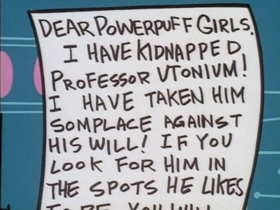 DEAR POWERPUFF GIRLS.
I HAVE KIDNAPPED
PROFESSOR UTONIUM!
I HAVE TAKEN HIM
SOMPLACE AGAINST
HIS WILL! IF YOU
LOOK FOR HIM IN
THE SPOTS HE LIKES
TO BE, YOU WILL